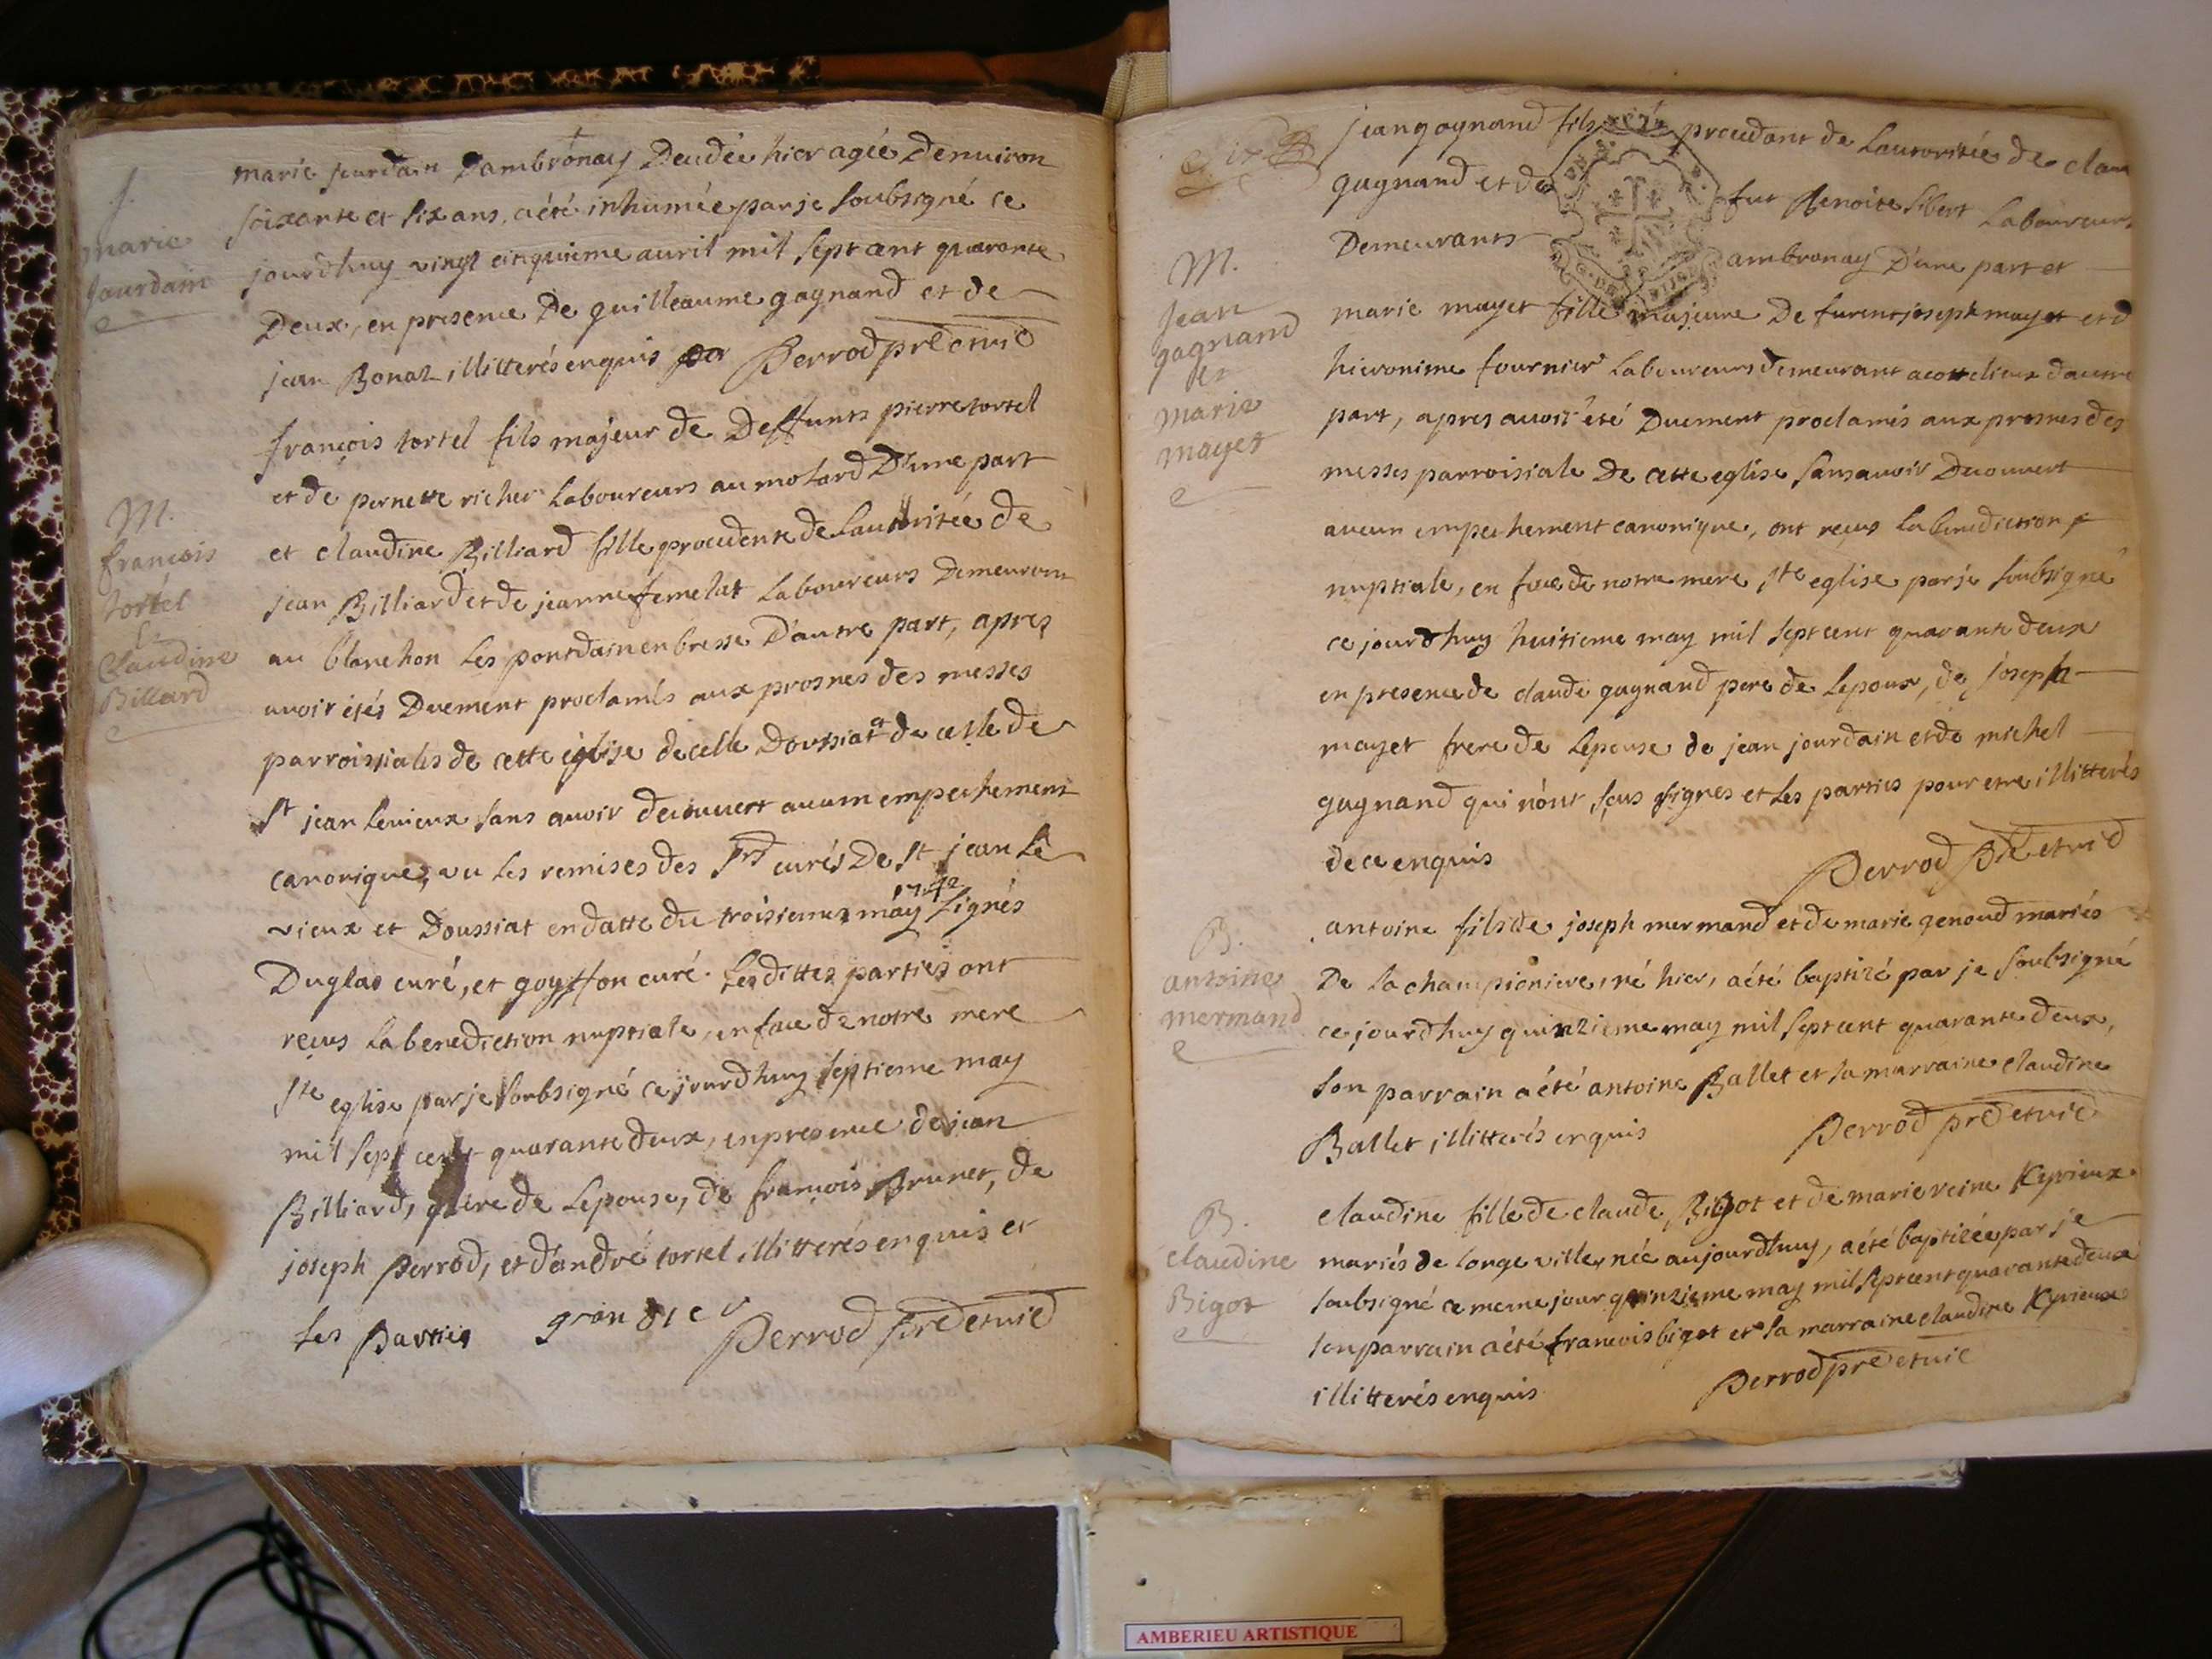 J.
marie
jourdain
marie jourdain Dambronay Decedée hier agée Denuiron
soixante et six ans, a été inhumée par je soubsigné ce
jourdhuy vingt cinquieme auril mil sept cent quarante
Deux, en presence De guilleaume gagnand et de
jean Bonaz illitterés enquis Perrod pre et vic
M.
francois
tortel
et
Claudine
Billard
françois tortel fils majeur de Deffunts pierre tortel
et de pernette richer laboureurs au molard D'une part
et claudine Billiard fille procedente de Lautorisée de
jean Billiard et de jeanne femelat Laboureurs Demeurant
au blanchon Les pontdain en bresse D'autre part, apres
auoir étés Duement proclamés aux prosnes des messes
parroissiales de cette église de celle Doussiat et de celle de
St jean Levieux sans auoir decouuert aucun empechement
canonique, vu les remises des Srs curés De St jean Le
vieux et Doussiat en datte du troisieme may 1742 signés
Duglas curé, et goyffon curé. Lesdittes parties ont
reçus La benediction nuptiale, en face de notre mere
Ste eglise par je soubsigné ce jourdhuy septieme may
mil sept cent quarante deux, en presence de jean
Billiard, pere de Lepouse, de françois Brunet, de
joseph Perrod, et d'andré tortel illitterés enquis et
les Parties Perrod pre et vic
M.
Jean
gagnand
et
marie
mayet
jean gagnand fils procedant de Lautorisée de clau
gagnand et de fut Benoite sibert Laboureurs
Demeurants ambronay D'une part et
marie mayet fille majeure De furent joseph mayet et d
hieronime fournier Laboureurs demeurant a cottelieux dautre
part, apres auoir été Duement proclamés aux prosnes des
messes parroisiale De cette eglise sans auoir Decouuert
aucun empechement canonique, ont reçus la benediction
nuptiale, en face de notre mere Ste eglise par je soubsigné
ce jourdhuy huitieme may mil sept cent quarante deux
en presence de claude gagnand pere de Lepoux, de joseph
mayet frere de Lepouse de jean jourdain et de michel
gagnand qui n'ont sous signes et les parties pour etre illitterés
de ce enquis Perrod pre et vic
B.
antoine
mermand
antoine fils de joseph mermand et de marie genoud mariés
De la championiere, né hier, a été baptizé par je soubsigné
ce jourdhuy quinzieme may mil sept cent quarante deux,
son parrain a été antoine Ballet et sa marraine claudine
Ballet illitterés enquis Perrod pre et vic
B.
claudine
Bigot
claudine fille de claude Bigot et de marie reine Kyrieux
mariés de longe ville, née aujourdhuy, a été baptizée par je
soubsigné ce meme jour quinzieme may mil sept cent quarante deux
son parrain a été francois bigot et sa marraine claudine Kyrieux
illitterés enquis Perrod pre et vic
AMBERIEU ARTISTIQUE